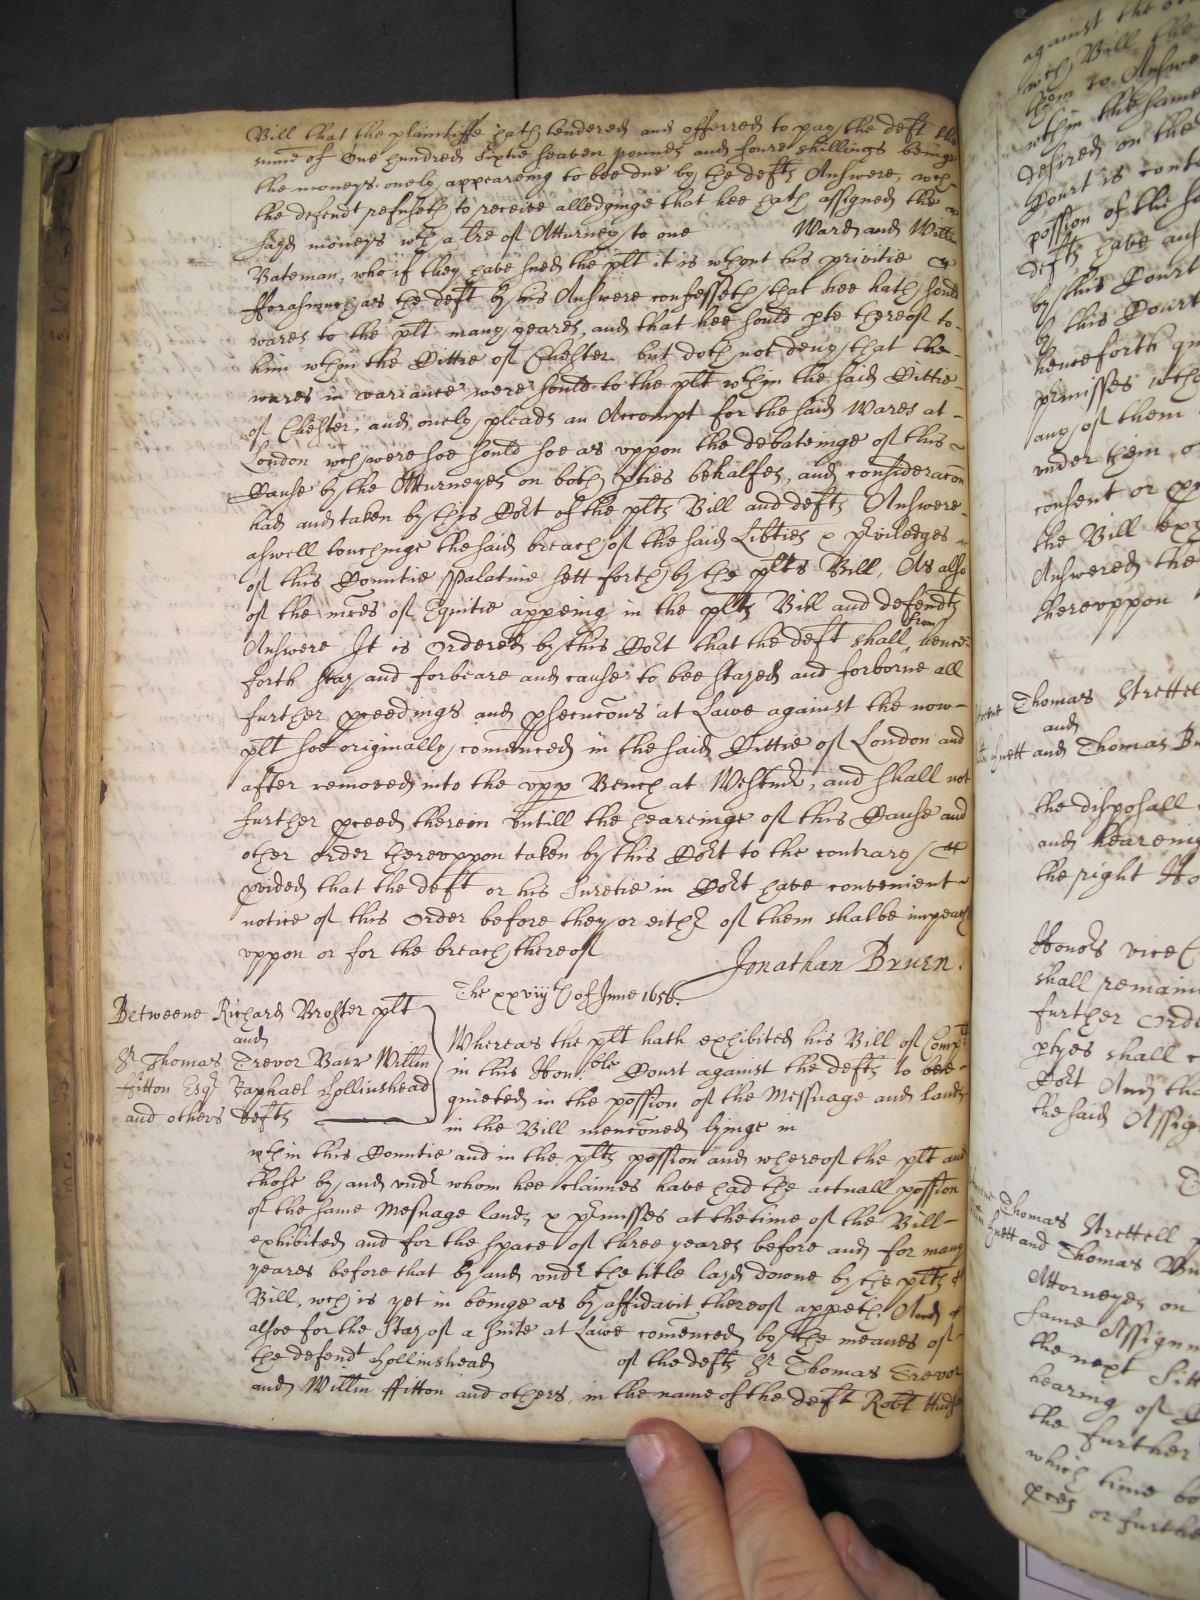 Bill that the plaintiffe hath tendered and offerred to pay the deft the
sume of One hundred Sixtie seaven pounds and foure shillings beinge
the moneys onely appeareing to bee due by the defts Answere, wch
the defendt refuseth to receive alledginge that hee hath assigned the
sayd moneys wth a tre of Atturney to one Ward and Willm
Bateman, who if they have sued the plt it is wthout his privitie
Forasmuch as the deft by his Answere confesseth that hee hath sould
wares to the plt many yeares, and that hee sould pte thereof to
him wthin the Cittie of Chester but doth not deny that the
wares in variance were sould to the plt wthin the said Cittie
of Chester, and onely pleads an Accompt for the said Wares at
London wch were soe sould soe as uppon the debateinge of this
Cause by the Atturneyes on both pties behalfes, and consideracon
had and taken by this Cort of the plts Bill and defts Answere
aswell touchinge the said breach of the said Libties & priviledges
of this Countie Pallatine sett forth by the plts Bill, As also
of the mres of Equitie appeing in the plts Bill and defendts
Answere It is Ordered by this Cort that the deft shall from hence
forth stay and forbeare and cause to bee stayed and forborne all
further pceedings and psecucons at Lawe against the now
plt soe originally comenced in the said Cittie of London and
after removed into the upp Bench at Westmr, and shall not
further pceed therein untill the heareinge of this Cause and
other Order thereuppon taken by this Cort to the contrary
pvided that the deft or his Suretie in Cort have convenient
notice of this Order before they or either of them shalbe impeacht
uppon or for the breach thereof
Jonathan Bruen.
The xxviijth of June 1656.
Betweene Richard Broster plt
and
Sr Thomas Trevor Barr Willm
ffitton Esqr Raphael Hollinshead
and others defts
Whereas the plt hath exhibited his Bill of Complt
in this Honble Court against the defts to bee
quieted in the possion of the Messuage and lands
in the Bill menconed lyinge in
wthin this Countie and in the plts possion and whereof the plt and
those by and undr whom hee claimes have had the actuall possion
of the same Mesuage lands & prmisses at the time of the Bill
exhibited and for the space of three yeares before and for many
yeares before that by and undr the title layd downe by the plts
Bill, wch is yet in beinge as by affidavit thereof appeth. And
alsoe for the stay of a suite at Lawe comenced by the meanes of
the defendt Hollinshead of the defts Sr Thomas Trevor
and Willm ffitton and others, in the name of the deft Robt
against the
wch Bill the
them to Answe
wthin the same
desired on the
Court is cont
possion of the sa
defts have
by this Court
by this Court
henceforth
prmisses
any of them
under him
consent or
the Bill
Answered the
thereuppon
Thomas Strettell
and
and Thomas
the disposall
and heareing
the right Ho
Honors vice
shall remaine
further Orde
ptyes shall
Cort And tha
the said Assig
Thomas Strettell
and Thomas
Attorneyes on
same Assignm
the next Sitt
hearing of
the further
which time
or furthe